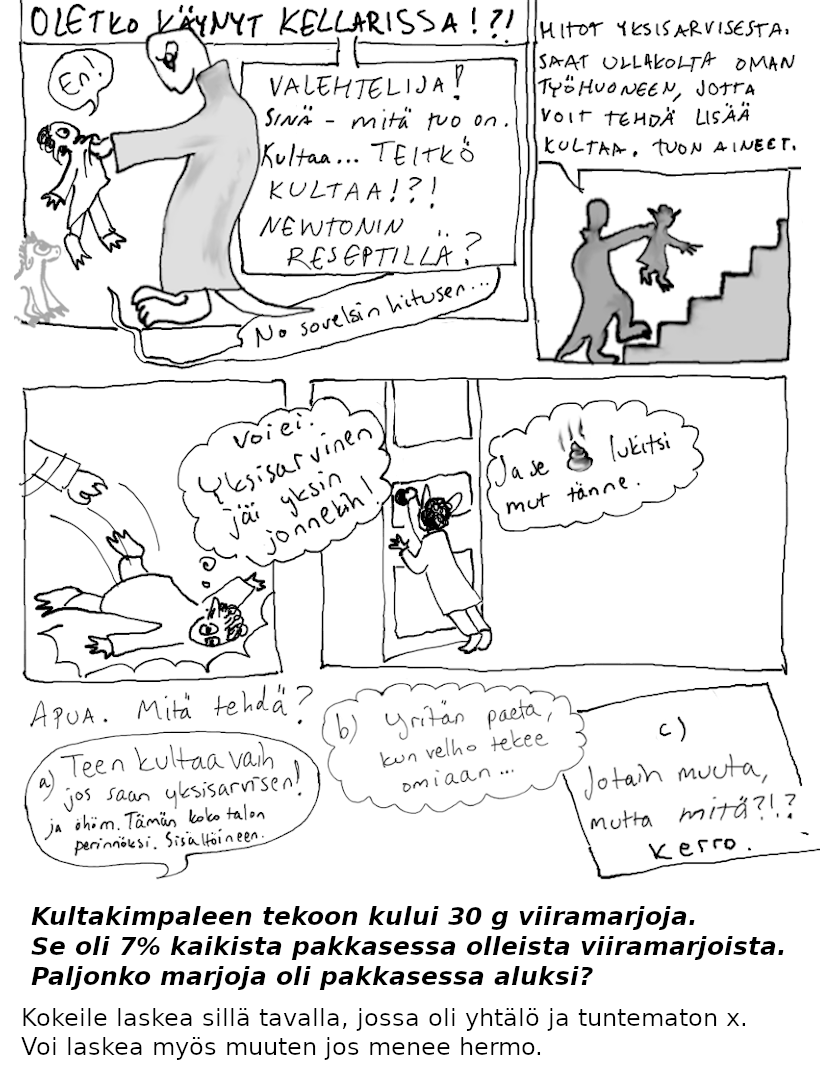 OLETKO KÄYNYT KELLARISSA!?!
En!
VALEHTELIJA!
SINÄ - mitä tuo on.
Kultaa... TEITKÖ
KULTAA!?!
NEWTONIN
RESEPTILLÄ?
No sovelsin hitusen...
HITOT YKSISARVISESTA.
SAAT ULLAKOLTA OMAN
TYÖHUONEEN, JOTTA
VOIT TEHDÄ LISÄÄ
KULTAA. TUON AINEET.
Voi ei.
Yksisarvinen
jäi yksin
jonnekin!
Ja se 💩 lukitsi
mut tänne.
APUA. Mitä tehdä?
a) Teen kultaa vain
jos saan yksisarvisen!
ja öhöm. Tämän koko talon
perinnöksi. Sisältöineen.
b) Yritän paeta,
kun velho tekee
omiaan...
c)
Jotain muuta,
mutta mitä?!?
Kerro.
Kultakimpaleen tekoon kului 30 g viiramarjoja.
Se oli 7% kaikista pakkasessa olleista viiramarjoista.
Paljonko marjoja oli pakkasessa aluksi?
Kokeile laskea sillä tavalla, jossa oli yhtälö ja tuntematon x.
Voi laskea myös muuten jos menee hermo.